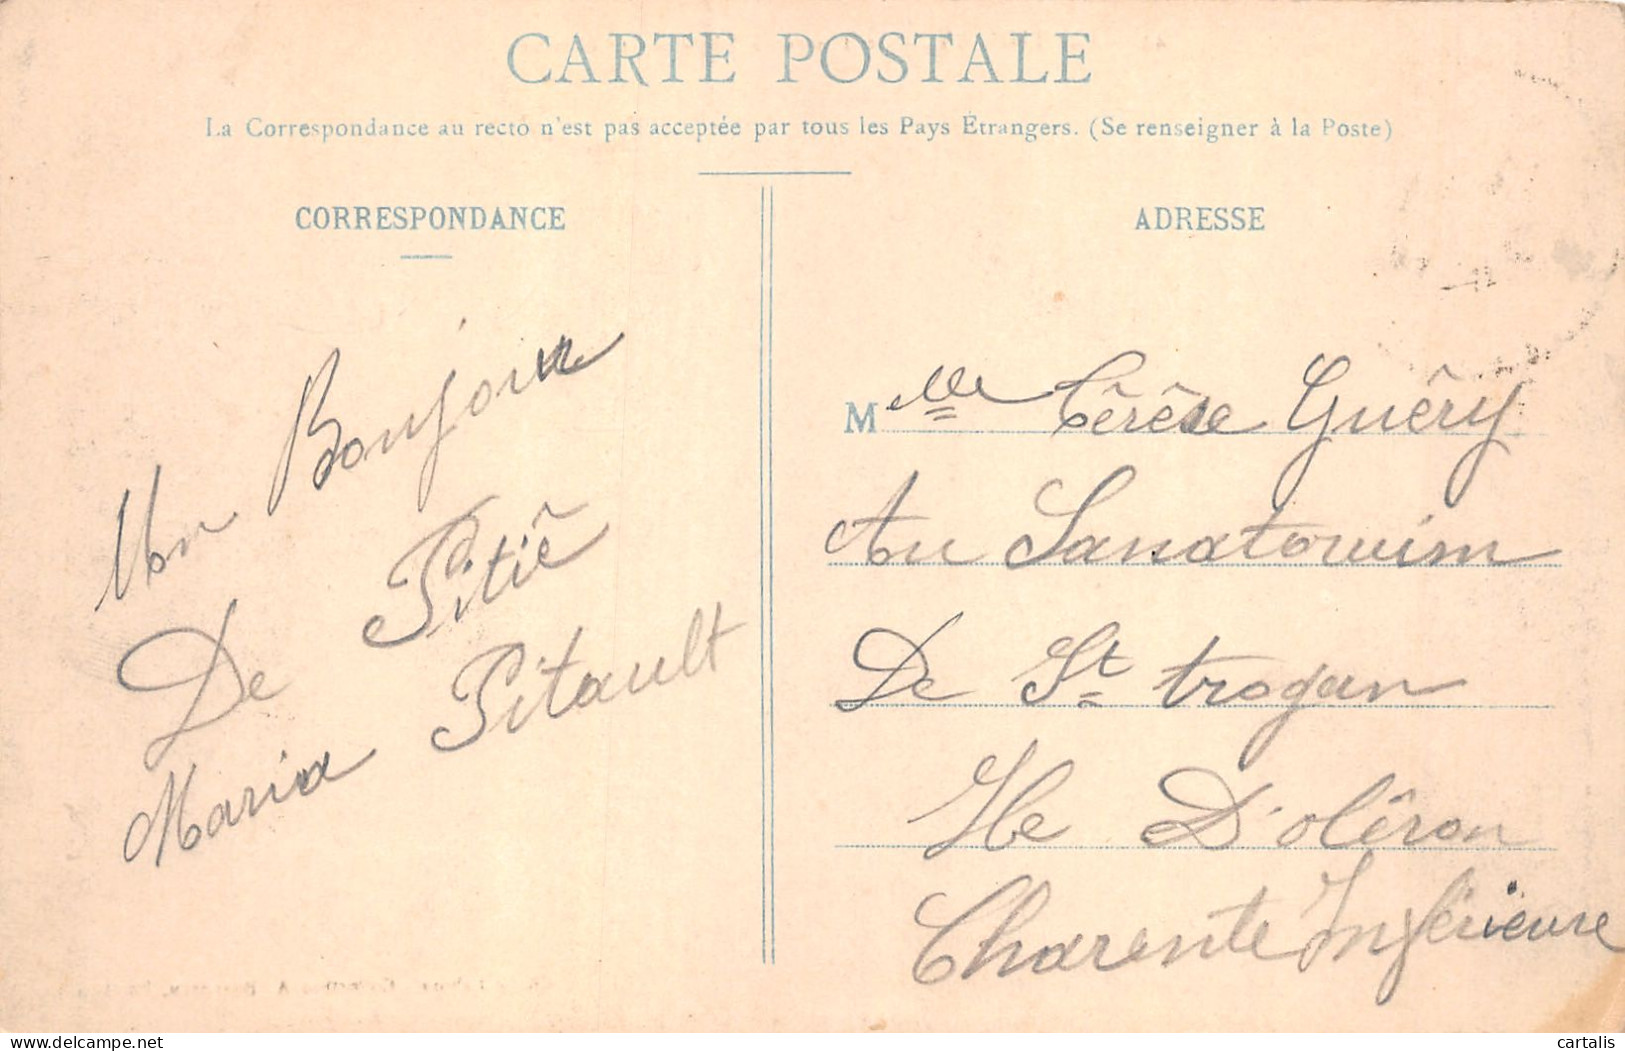 CARTE POSTALE
La Correspondance au recto n'est pas acceptée par tous les Pays Étrangers. (Se renseigner à la Poste)
CORRESPONDANCE
Mon Bonjour
De Pitiê
Maria Pitault
ADRESSE
Melle Cêrêse Guêry
Au Sanatoruim
De St trogan
Ile D'olêron
Charente Inférieure
delcampe.net
cartalis